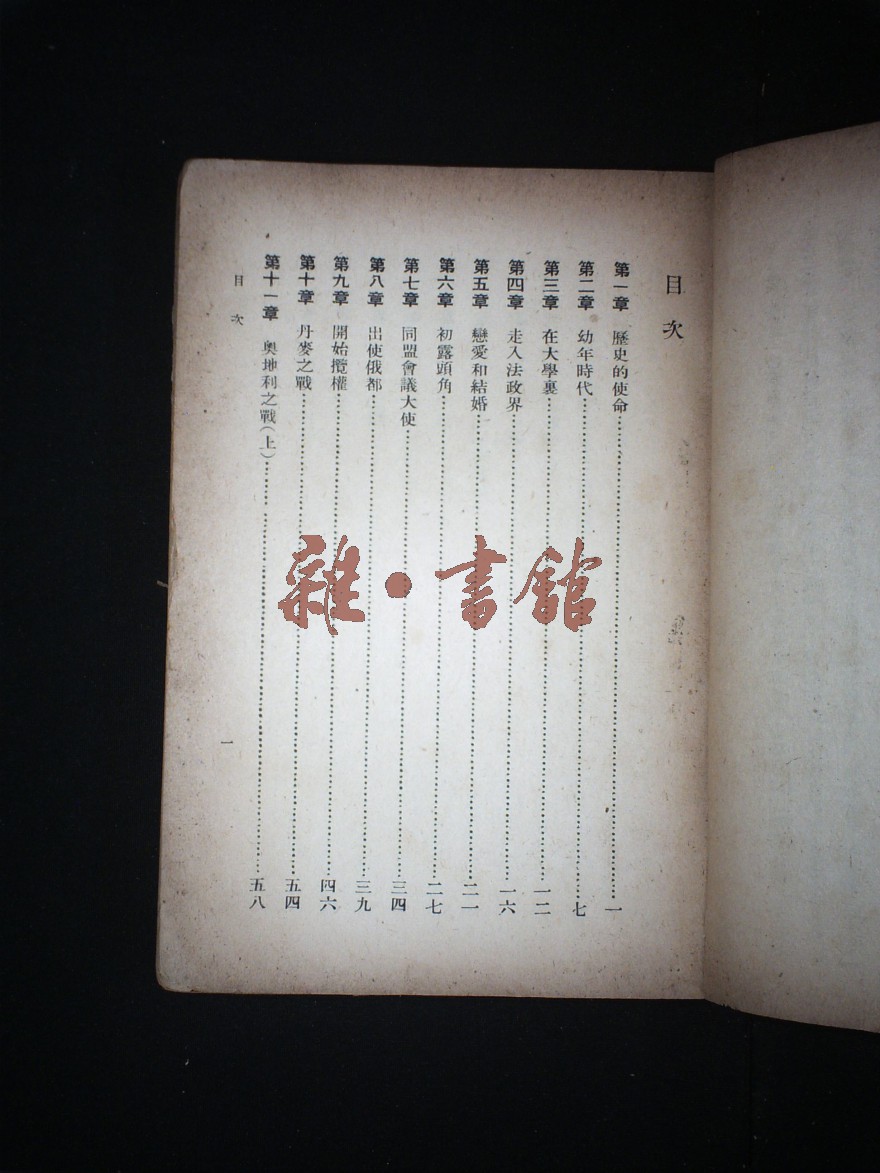 目次
第一章 歷史的使命……一
第二章 幼年時代……七
第三章 在大學裏……一二
第四章 走入法政界……一六
第五章 戀愛和結婚……二一
第六章 初露頭角……二七
第七章 同盟會議大使……三四
第八章 出使俄都……三九
第九章 開始攬權……四六
第十章 丹麥之戰……五四
第十一章 奧地利之戰(上)……五八
目次
一
雜·書館